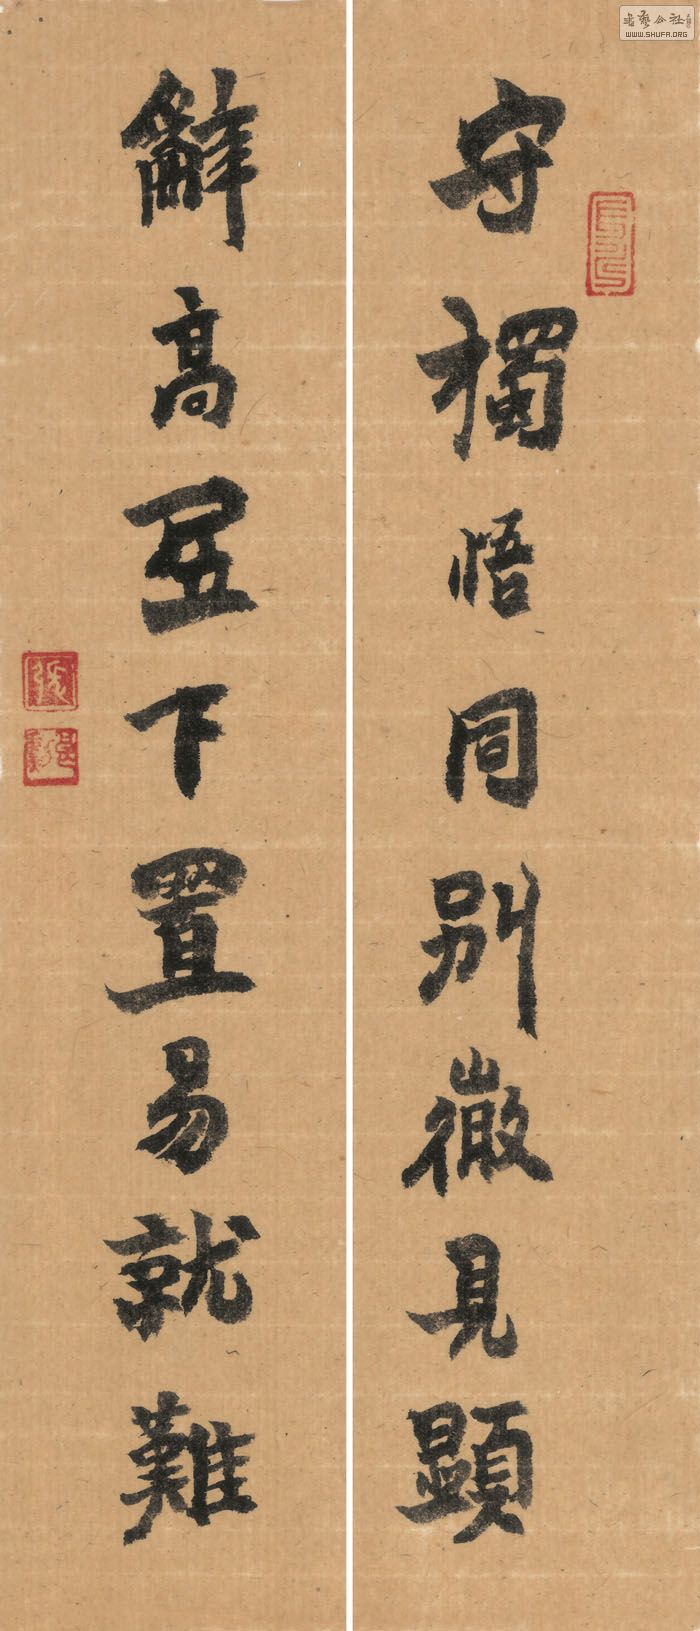 守獨悟同別微見顯
辭高居下置易就難
書藝公社
WWW.SHUFA.ORG